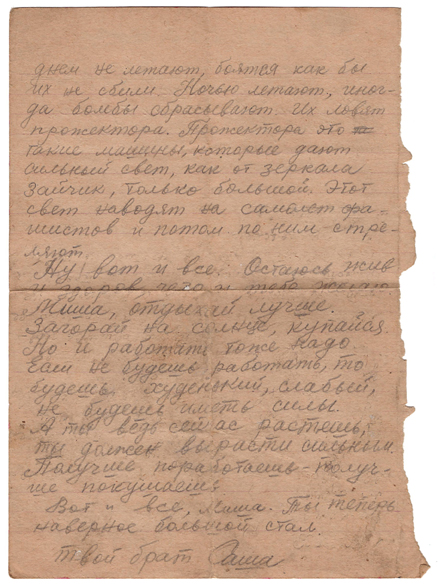 днем не летают, боятся как бы
их не сбили. Ночью летают, иног-
да бомбы сбрасывают. Их ловят
прожектора. Прожектора это
такие машины, которые дают
сильный свет, как от зеркала
зайчик, только большой. Этот
свет наводят на самолет фа-
шистов и потом по ним стре-
ляют.
Ну вот и все. Остаюсь жив
и здоров чего и тебе желаю
Миша, отдыхай лучше.
Загорай на солнце, купайся
Но и работать тоже надо.
Если не будешь работать, то
будешь худенький, слабый,
не будешь иметь силы.
А ты ведь сейчас растешь,
ты должен вырасти сильным.
Получше поработаешь - получ-
ше покушаешь
Вот и все, Миша. Ты теперь
наверное большой стал.
Твой брат Саша